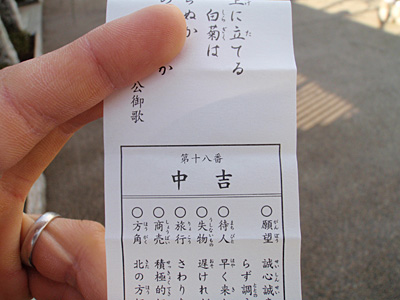 に立てる
白菊は
らぬか
か
公御歌
第十八番
中吉
○願望 誠心誠
らず調
○待人 早く来
○失物 遅けれ
○旅行 さわり
○商売 積極的
○方角 北の方